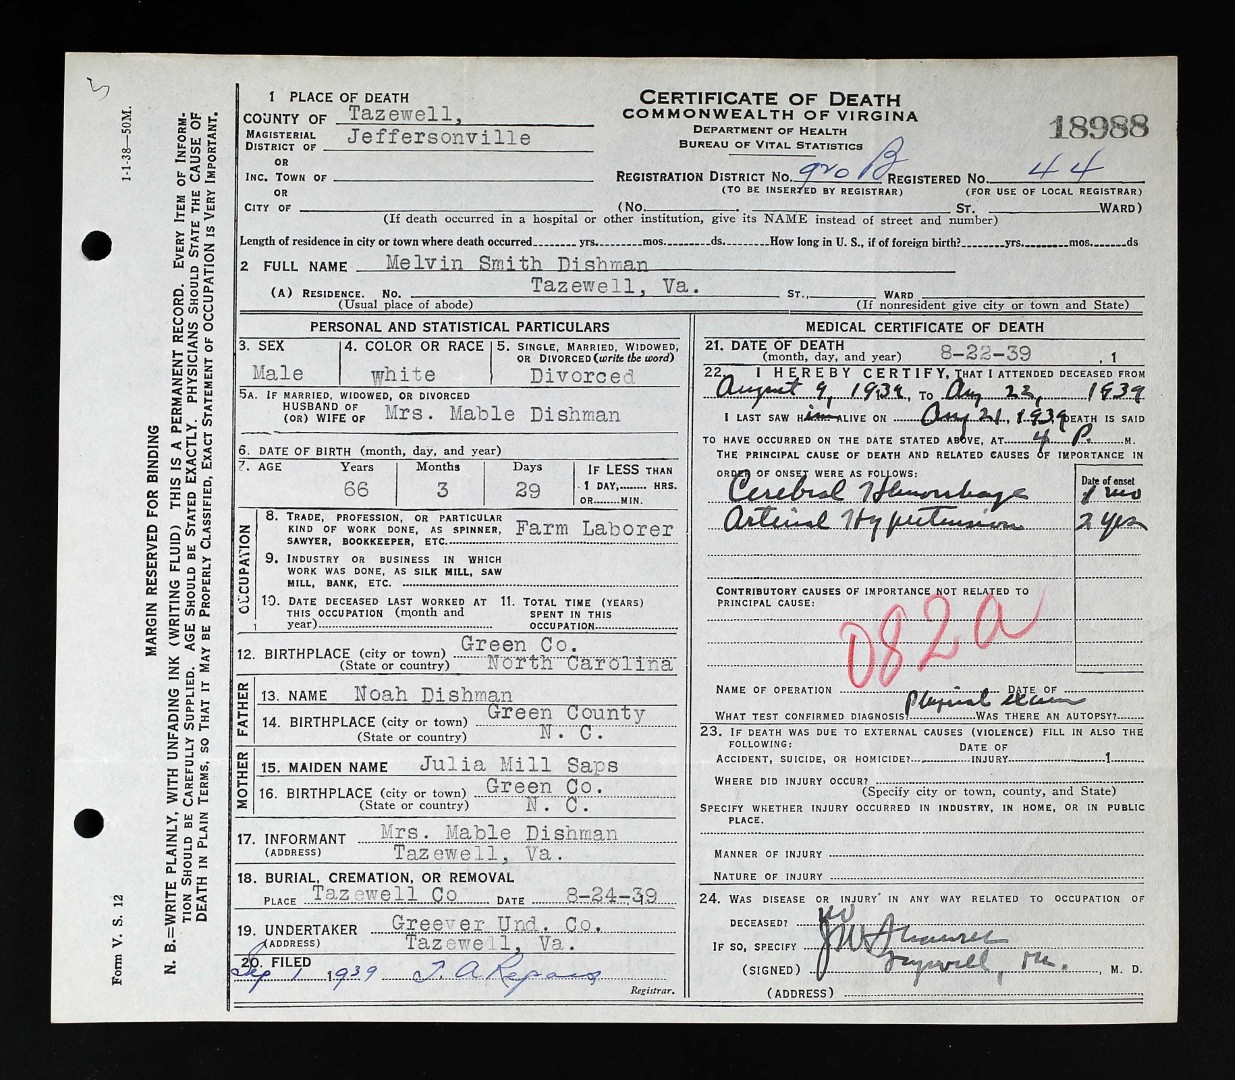 1 PLACE OF DEATH
COUNTY OF Tazewell,
MAGISTERIAL DISTRICT OF Jeffersonville
OR
INC. TOWN OF
OR
CITY OF
CERTIFICATE OF DEATH
COMMONWEALTH OF VIRGINIA
DEPARTMENT OF HEALTH
BUREAU OF VITAL STATISTICS
18988
REGISTRATION DISTRICT No. 920 B REGISTERED No. 44
(TO BE INSERTED BY REGISTRAR) (FOR USE OF LOCAL REGISTRAR)
(No. ST. WARD)
(If death occurred in a hospital or other institution, give its NAME instead of street and number)
Length of residence in city or town where death occurred yrs. mos. ds. How long in U. S., if of foreign birth? yrs. mos. ds
2 FULL NAME Melvin Smith Dishman
(A) RESIDENCE. No. Tazewell, Va. ST., WARD
(Usual place of abode) (If nonresident give city or town and State)
PERSONAL AND STATISTICAL PARTICULARS
3. SEX 4. COLOR OR RACE 5. SINGLE, MARRIED, WIDOWED, OR DIVORCED (write the word)
Male white Divorced
5A. IF MARRIED, WIDOWED, OR DIVORCED
HUSBAND OF
(OR) WIFE OF Mrs. Mable Dishman
6. DATE OF BIRTH (month, day, and year)
7. AGE Years Months Days IF LESS THAN
66 3 29 1 DAY, HRS.
OR MIN.
OCCUPATION
8. TRADE, PROFESSION, OR PARTICULAR
KIND OF WORK DONE, AS SPINNER,
SAWYER, BOOKKEEPER, ETC. Farm Laborer
9. INDUSTRY OR BUSINESS IN WHICH
WORK WAS DONE, AS SILK MILL, SAW
MILL, BANK, ETC.
10. DATE DECEASED LAST WORKED AT THIS OCCUPATION (month and year)
11. TOTAL TIME (YEARS) SPENT IN THIS OCCUPATION
12. BIRTHPLACE (city or town) Green Co.
(State or country) North Carolina
FATHER
13. NAME Noah Dishman
14. BIRTHPLACE (city or town) Green County
(State or country) N. C.
MOTHER
15. MAIDEN NAME Julia Mill Saps
16. BIRTHPLACE (city or town) Green Co.
(State or country) N. C.
17. INFORMANT Mrs. Mable Dishman
(ADDRESS) Tazewell, Va.
18. BURIAL, CREMATION, OR REMOVAL
PLACE Tazewell Co DATE 8-24-39
19. UNDERTAKER Greever Und. Co.
(ADDRESS) Tazewell, Va.
20. FILED
Sep 1 1939
Registrar.
MEDICAL CERTIFICATE OF DEATH
21. DATE OF DEATH
(month, day, and year) 8-22-39 , 1
22. I HEREBY CERTIFY, THAT I ATTENDED DECEASED FROM
August 9, 1939, TO Aug 22, 1939
I LAST SAW Him ALIVE ON Aug 21, 1939 DEATH IS SAID
TO HAVE OCCURRED ON THE DATE STATED ABOVE, AT 4 P. M.
THE PRINCIPAL CAUSE OF DEATH AND RELATED CAUSES OF IMPORTANCE IN
ORDER OF ONSET WERE AS FOLLOWS: Date of onset
Cerebral Hemorrhage 1 mo
Arterial Hypertension 2 yrs
CONTRIBUTORY CAUSES OF IMPORTANCE NOT RELATED TO
PRINCIPAL CAUSE:
082a
NAME OF OPERATION DATE OF
WHAT TEST CONFIRMED DIAGNOSIS? Physical exam WAS THERE AN AUTOPSY?
23. IF DEATH WAS DUE TO EXTERNAL CAUSES (VIOLENCE) FILL IN ALSO THE
FOLLOWING:
DATE OF
ACCIDENT, SUICIDE, OR HOMICIDE? INJURY 1
WHERE DID INJURY OCCUR?
(Specify city or town, county, and State)
SPECIFY WHETHER INJURY OCCURRED IN INDUSTRY, IN HOME, OR IN PUBLIC
PLACE.
MANNER OF INJURY
NATURE OF INJURY
24. WAS DISEASE OR INJURY IN ANY WAY RELATED TO OCCUPATION OF
DECEASED? no
IF SO, SPECIFY
(SIGNED) , M. D.
(ADDRESS)
1-1-38—50M.
Form V. S. 12
MARGIN RESERVED FOR BINDING
N. B.=WRITE PLAINLY, WITH UNFADING INK (WRITING FLUID) THIS IS A PERMANENT RECORD. EVERY ITEM OF INFORM-
TION SHOULD BE CAREFULLY SUPPLIED. AGE SHOULD BE STATED EXACTLY. PHYSICIANS SHOULD STATE THE CAUSE OF
DEATH IN PLAIN TERMS, SO THAT IT MAY BE PROPERLY CLASSIFIED, EXACT STATEMENT OF OCCUPATION IS VERY IMPORTANT.